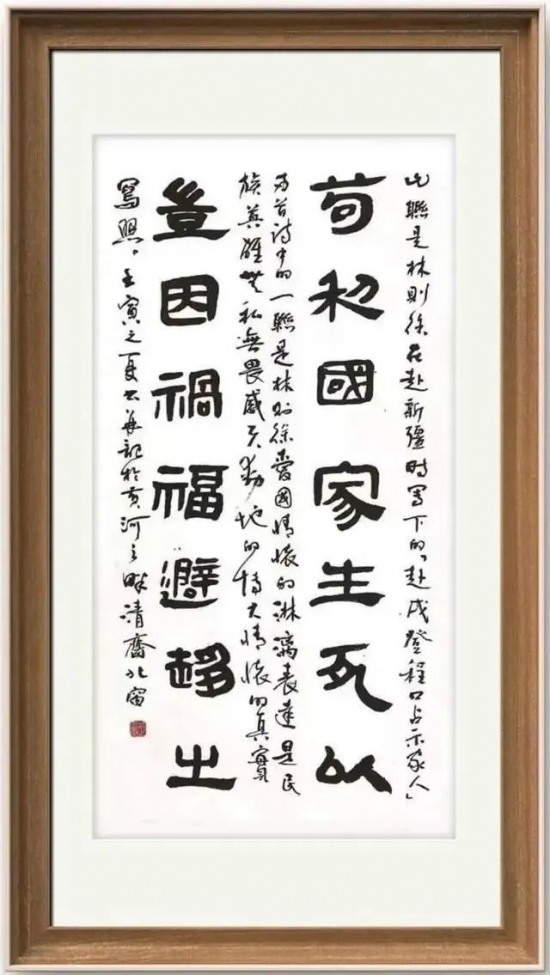 此聯是林則徐在赴新疆時寫下的，「赴戍登程口占示家人」
苟利國家生死以
为首詩中的一聯是林則徐愛國情懷的淋漓表達是民
族英雄無私無畏感天動地的博大情懷的真實
豈因禍福避趍之
寫照。壬寅之夏 記於黄河之畔清齋北窗